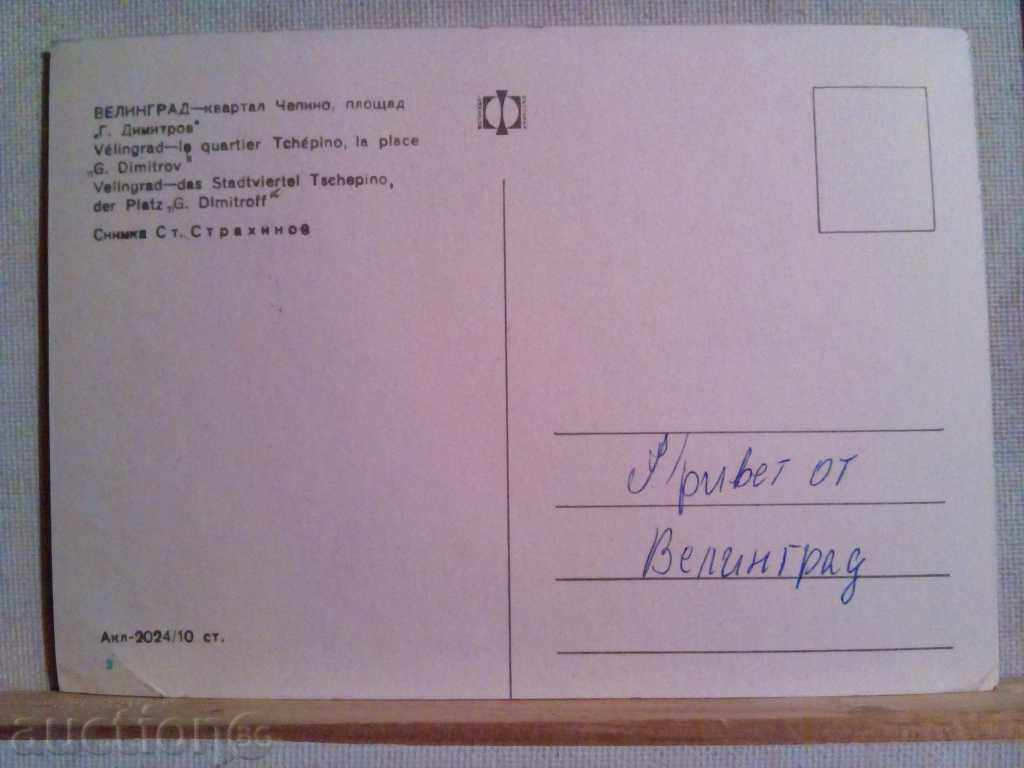 ВЕЛИНГРАД—квартал Чепино, площад
„Г. Димитров“
Vélingrad—le quartier Tchépino, la place
„G. Dimitrov“
Velingrad—das Stadtviertel Tschepino,
der Platz „G. Dimitroff“
Снимка Ст. Страхинов
Привет от
Велинград
Акл-2024/10 ст.
auction.bg